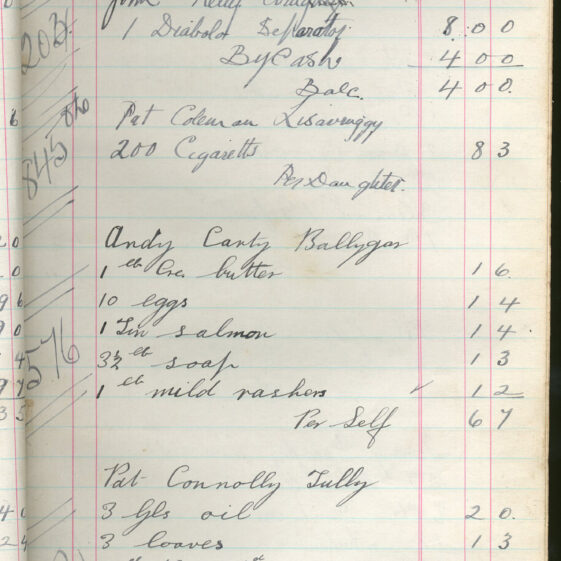 John Kelly
1 Diabolo Separator 8 0 0
By Cash 4 0 0
Balc. 4 0 0
Pat Coleman Lisavruggy
200 Cigaretts 8 3
Per Daughter.
845
Andy Carty Ballygar
1 lb Cre butter 1 6
10 eggs 1 4
1 Tin salmon 1 4
576
3½ lb soap 1 3
1 lb mild rashers 1 2
Per Self 6 7
Pat Connolly Tully
3 Gls oil 2 0
3 loaves 1 3